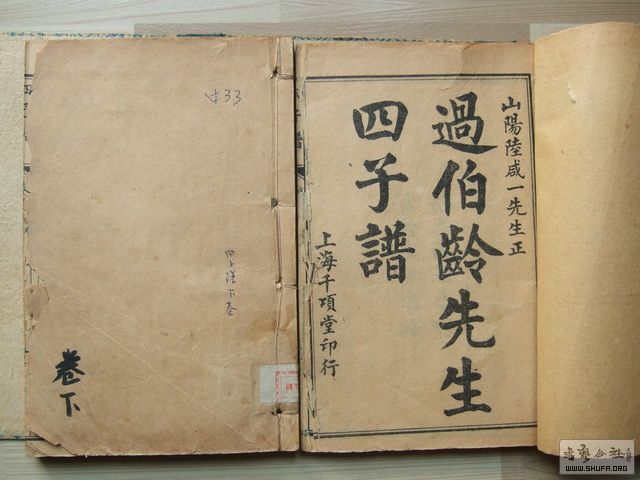 山陽陸咸一先生正
過伯齡先生
四子譜
上海千項堂印行
中33
四子譜下卷
卷下
WWW.SHUFA.ORG